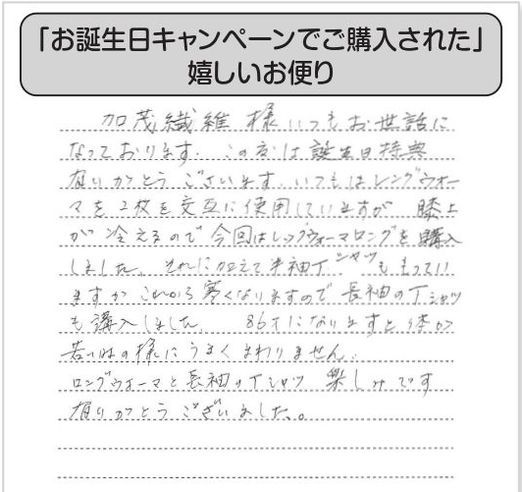 「お誕生日キャンペーンでご購入された」
嬉しいお便り
加茂繊維 様 いつもお世話に
なっております. この度は誕生日特典
有りがとうございます. いつもはレングウォー
マを2枚を交互に使用していますが 膝上
が冷えるので今回はレッグウォーマロングを購入
しました. それに加えて半袖Tシャツももってい
ますがこれから寒くなりますので長袖のTシャツ
も購入しました. 86才になりますと体が
若い時の様にうまくまわりません.
ロングウォーマと長袖のTシャツ 楽しみです
有りがとうございました。